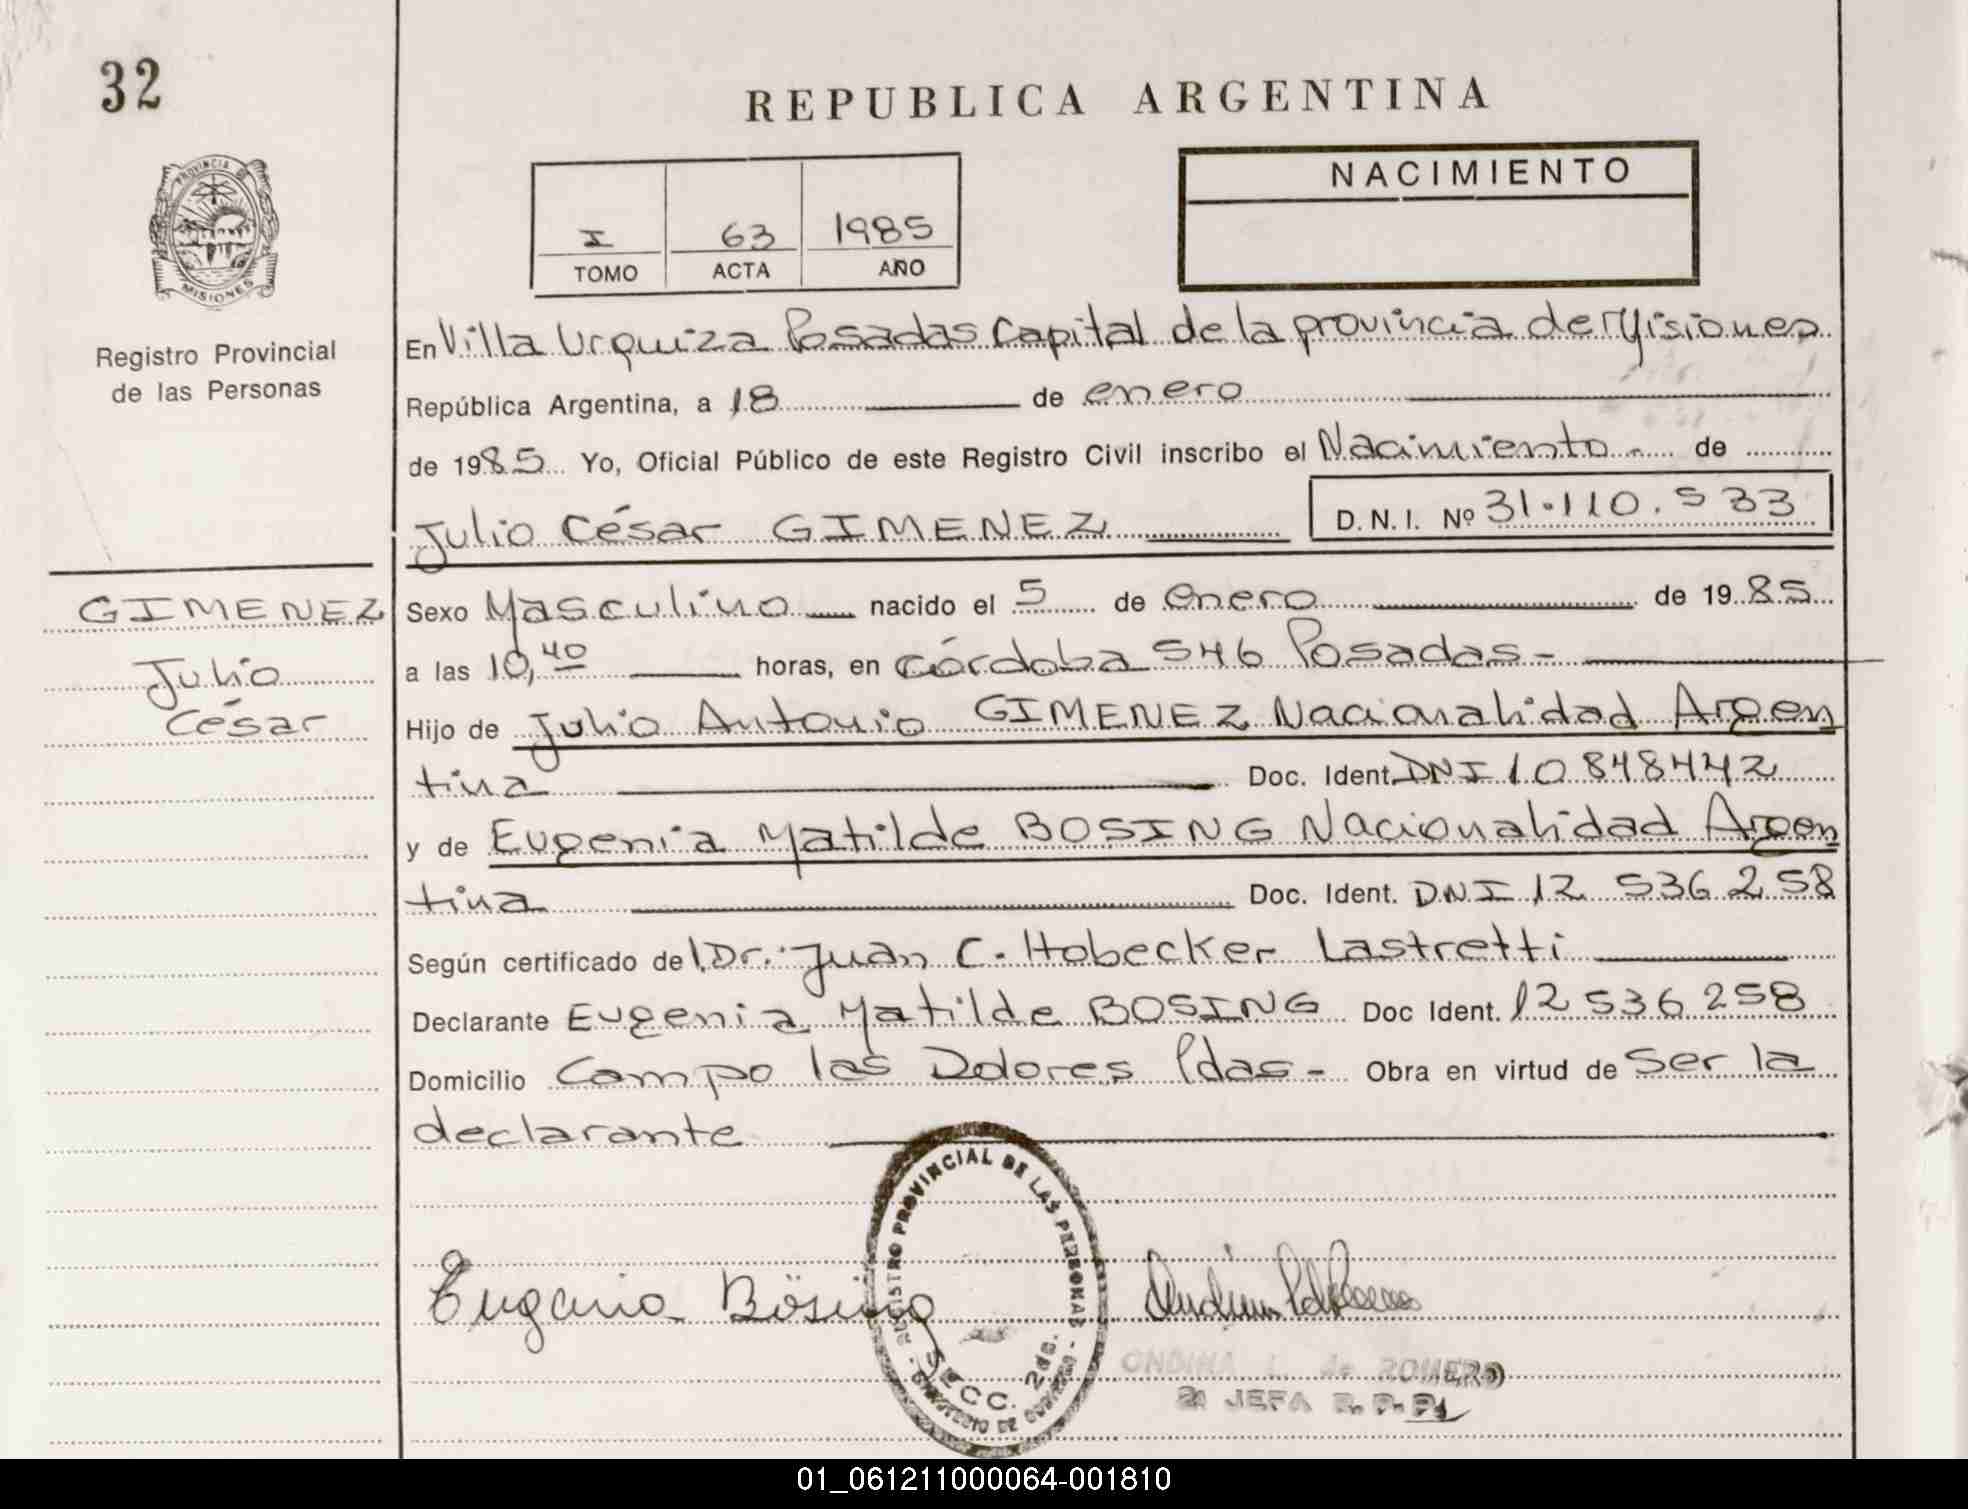 32
REPUBLICA ARGENTINA
PROVINCIA DE
MISIONES
Registro Provincial
de las Personas
I 63 1985
TOMO ACTA AÑO
NACIMIENTO
En Villa Urquiza Posadas Capital de la provincia de Misiones
República Argentina, a 18 de enero
de 1985 Yo, Oficial Público de este Registro Civil inscribo el Nacimiento - de
Julio César GIMENEZ D.N.I. Nº 31.110.533
GIMENEZ
Julio
César
Sexo Masculino nacido el 5 de enero de 1985
a las 10,40 horas, en Córdoba 546 Posadas-
Hijo de Julio Antonio GIMENEZ Nacionalidad Argen
tina Doc. Ident. DNI 10848442
y de Eugenia Matilde BOSING Nacionalidad Argen
tina Doc. Ident. DNI 12 536 258
Según certificado del Dr. Juan C. Hobecker Lastretti
Declarante Eugenia Matilde BOSING Doc Ident. 12 536 258
Domicilio Campo las Dolores Pdas- Obra en virtud de Ser la
declarante
REGISTRO PROVINCIAL DE LAS PERSONAS
SECC. 2da.
Eugenia Bösing
ONDINA L. de ROMERO
2a JEFA R. P. P.
01_061211000064-001810